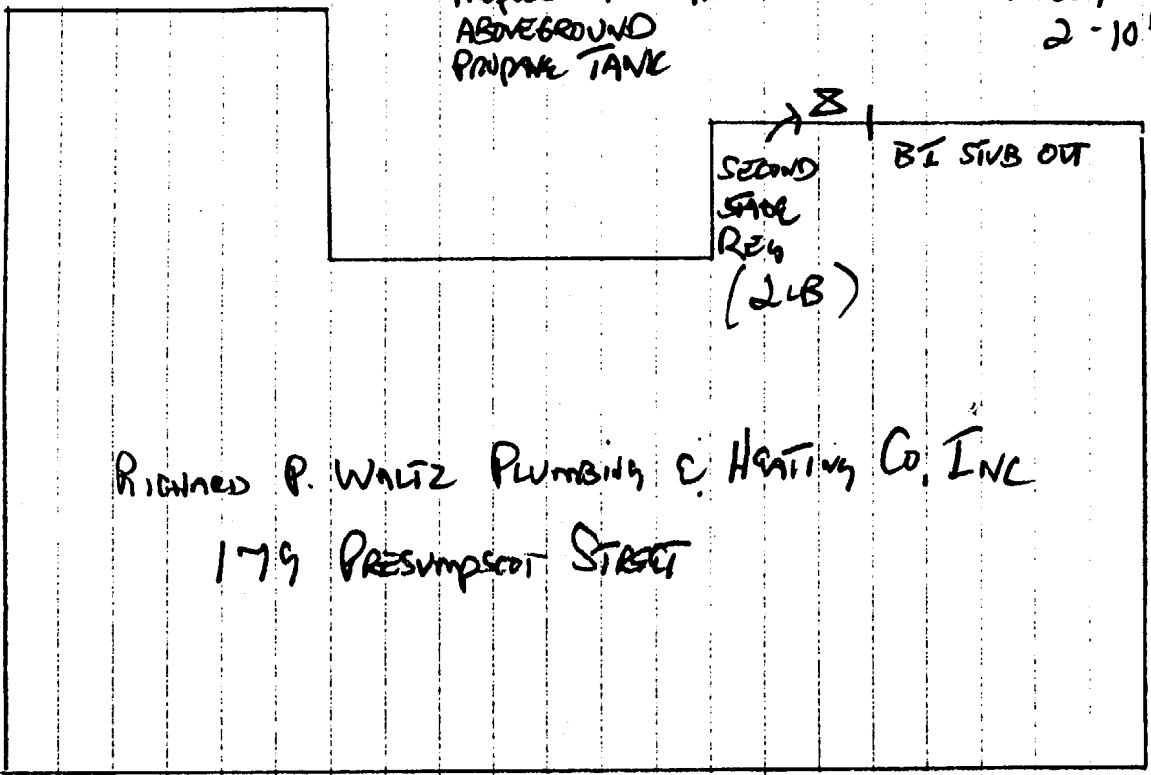 ABOVEGROUND
2 - 10'
PROPANE TANK
SECOND
STAGE
REG
(2 LB)
BI STUB OUT
RICHARD P. WALTZ PLUMBING & HEATING CO, INC
179 PRESUMPSCOT STREET